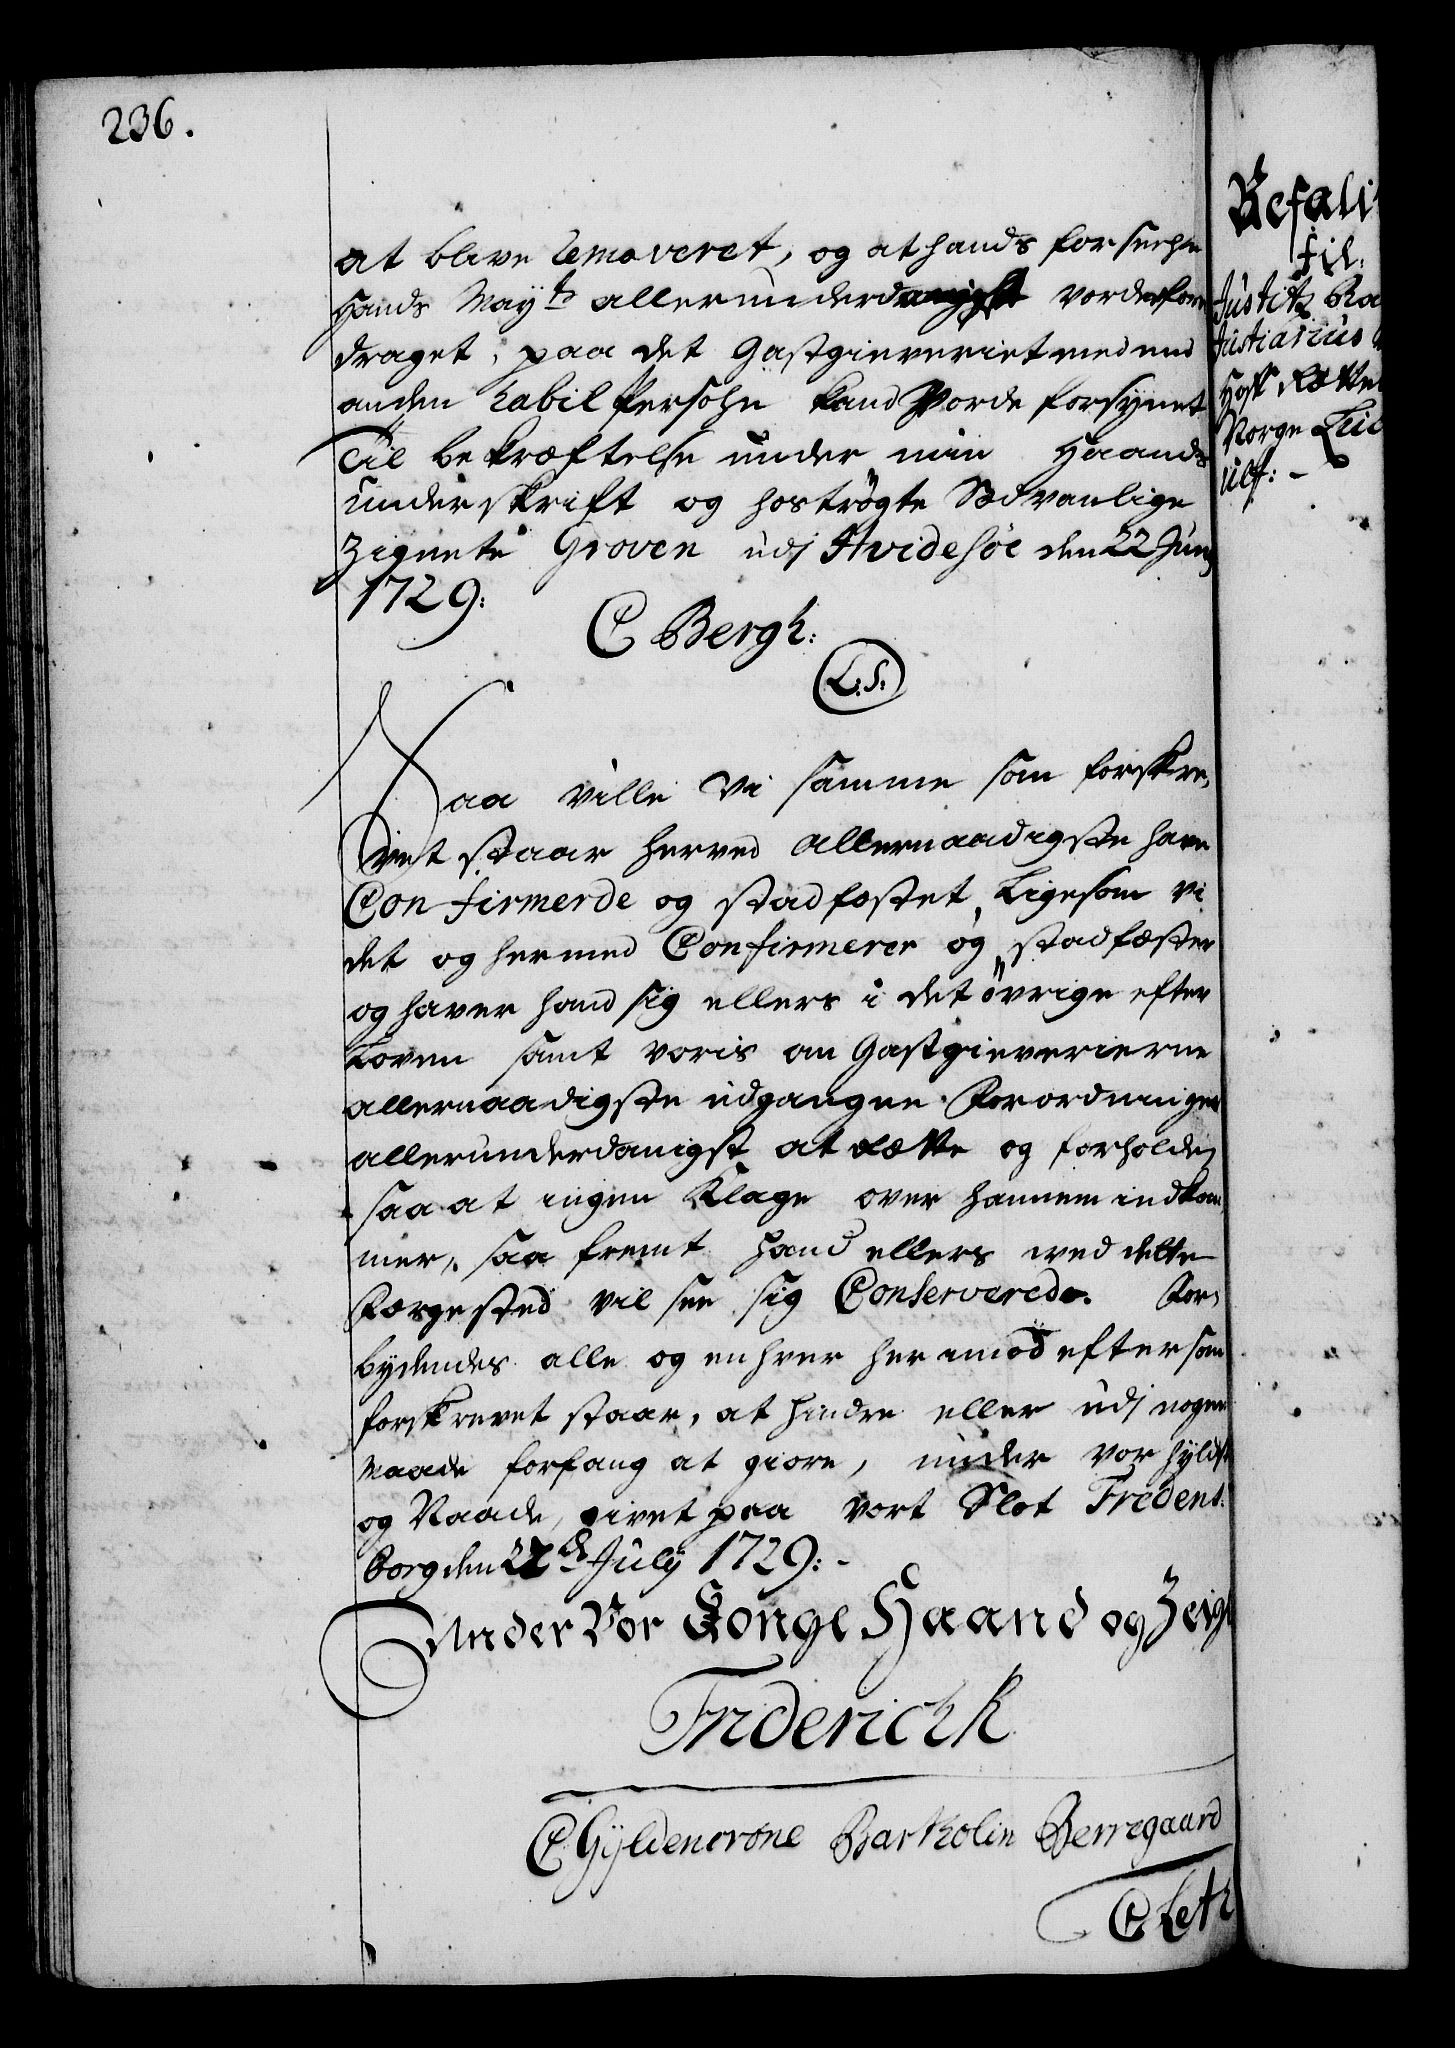 236.
at blive removeret, og at hands forseelse
Hands Mayts allerunderdanigst vorder fore
draget, paa det Gastgieveriet med en
anden habil Persohn kand Vorde forsynet
Til bekræftelse under min Haands
underskrift og hoströgte Sædvanlige
Zignete Groven udj Hvidesöe den 22 Junj
1729:
C Bergh:
L: S:
Saa ville Vi samme som forskre,
vet staar herved allernaadigste have
Confirmerde og stadfæstet, Ligesom vi
det og hermed Confirmerer og stadfæster
og haver hand sig ellers i det övrige efter
Loven samt voris om Gastgieverierne
allernaadigste udgangne Forordninger
allerunderdanigst at rætte og forholde,
saa at ingen Klage over hannem indkom
mer, saa fremt hand ellers ved dette
Færgested vil see sig Conserverede. For,
bydendes alle og enhver herimod eftersom
forskrevet staar, at hindre eller udj nogen
Maade forfang at giøre, under vor hyldest
og Naade, givet paa vort Slot Fredens:
borg den 22de July 1729: -
Under Vor Konge Haand og Zeigl
Friderich R
C Gÿldencrone Bartholin Berregaard
C Leth
Befali
til:
Justitz Ra
Justiarius
Hoff Rætte
Norge
Ulf: -